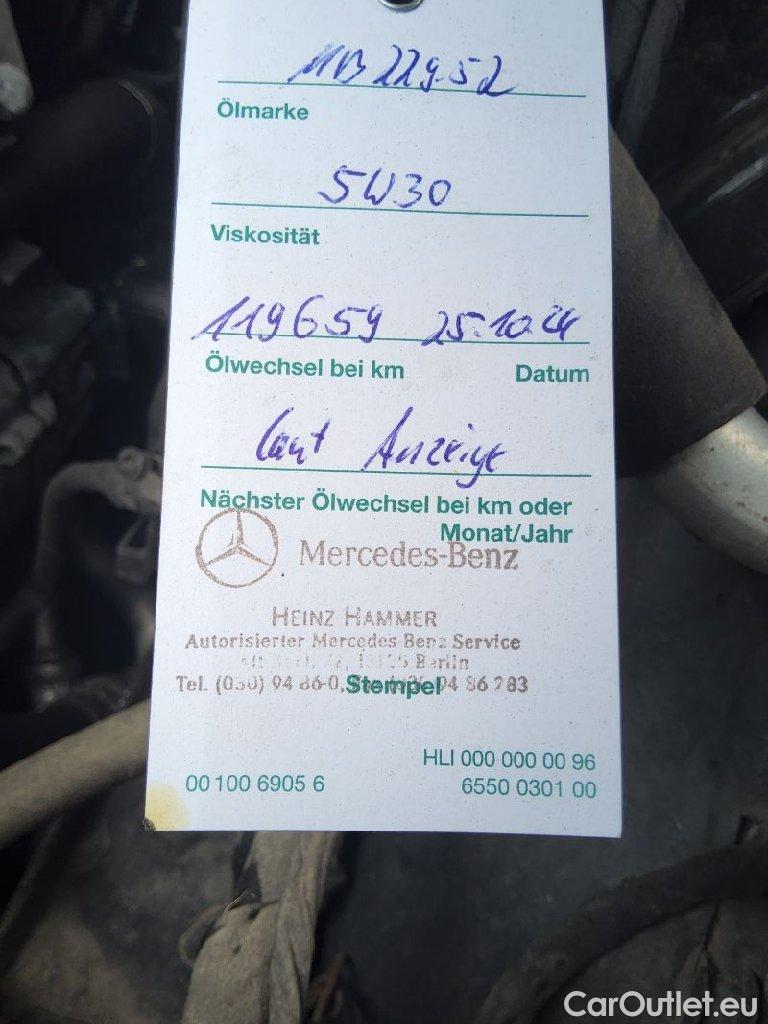 MB 229.52
Ölmarke
5W30
Viskosität
119659 25.10.24
Ölwechsel bei km Datum
laut Anzeige
Nächster Ölwechsel bei km oder
Monat/Jahr
Mercedes-Benz
HEINZ HAMMER
Autorisierter Mercedes-Benz Service
Berlin
Tel. (030) 94 86-0, 94 86 283
Stempel
HLI 000 000 00 96
00 100 6905 6 6550 0301 00
CarOutlet.eu